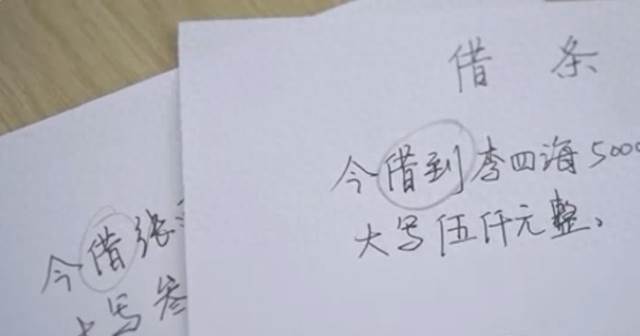 借条
今借到李四海5000
大写伍仟元整。
今借张
大写叁